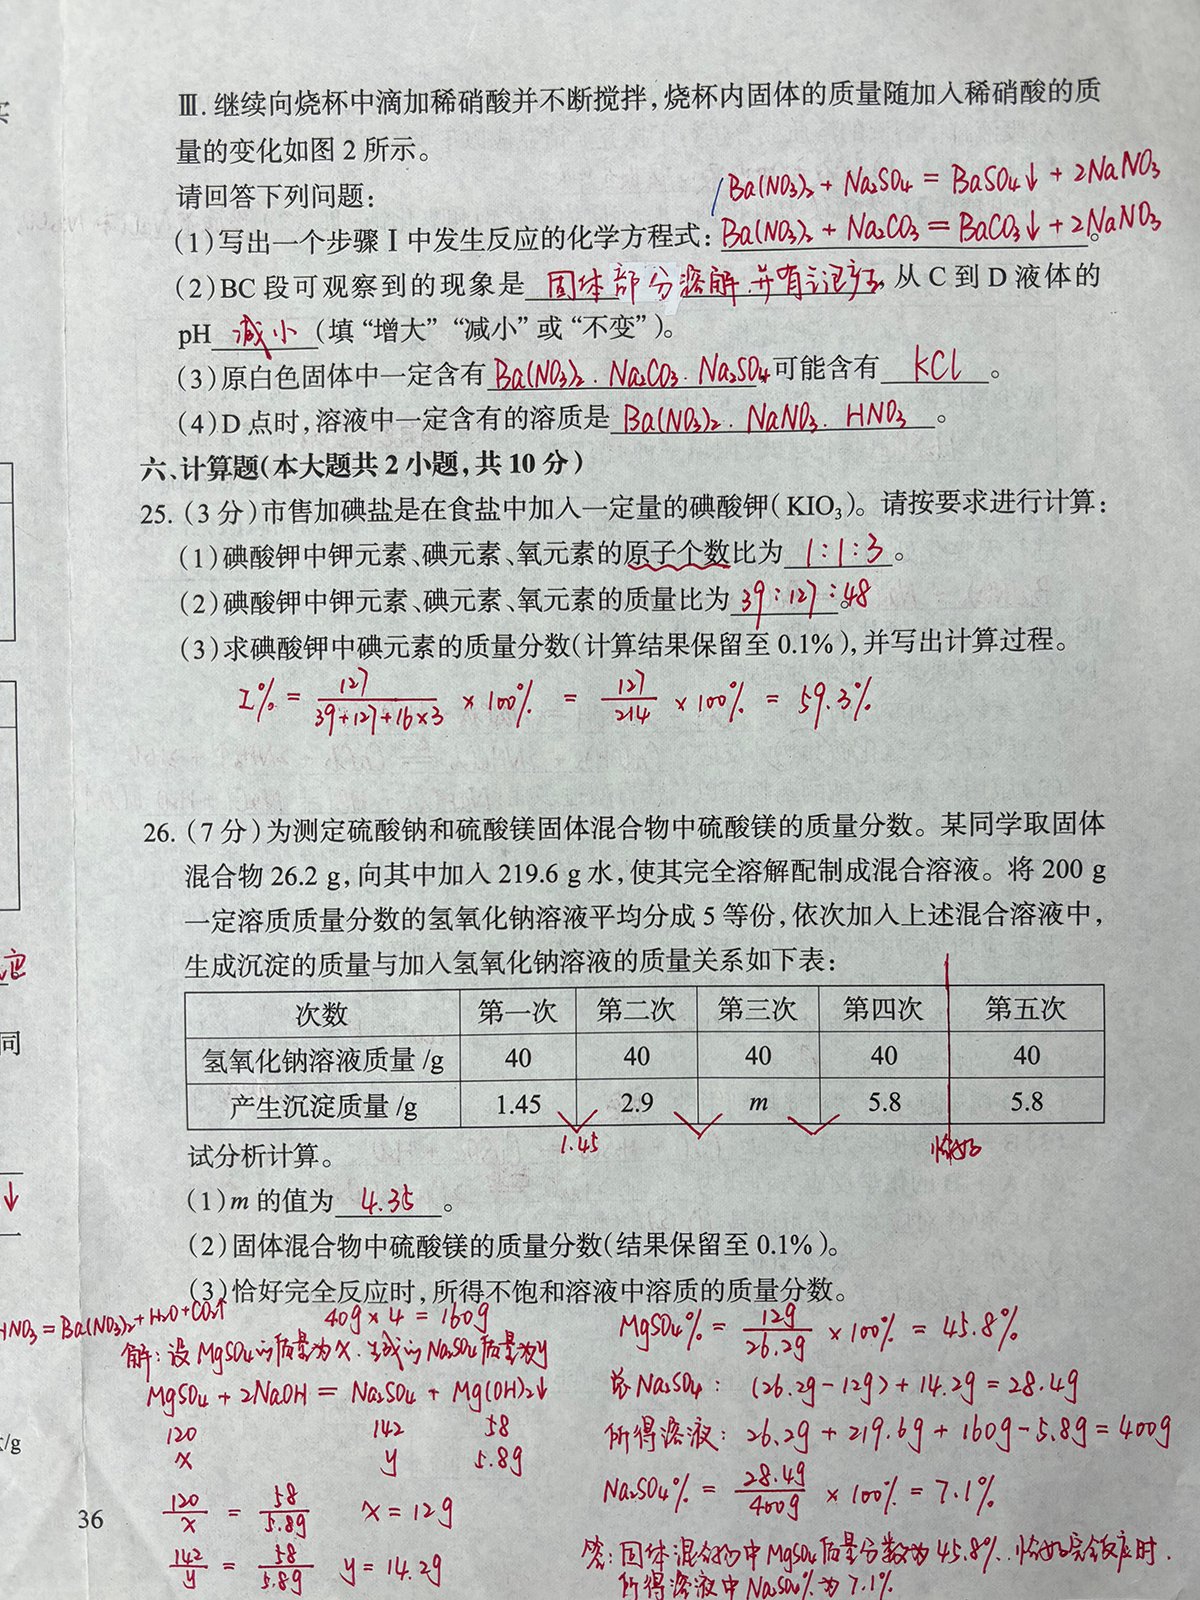 Ⅲ.继续向烧杯中滴加稀硝酸并不断搅拌,烧杯内固体的质量随加入稀硝酸的质
量的变化如图2所示。
请回答下列问题:
Ba(NO₃)₂ + Na₂SO₄ = BaSO₄↓ + 2NaNO₃
(1)写出一个步骤Ⅰ中发生反应的化学方程式: Ba(NO₃)₂ + Na₂CO₃ = BaCO₃↓ + 2NaNO₃。
(2)BC段可观察到的现象是 固体部分溶解.并有气泡产生,从C到D液体的
pH 减小 (填“增大”“减小”或“不变”)。
(3)原白色固体中一定含有 Ba(NO₃)₂. Na₂CO₃. Na₂SO₄ 可能含有 KCl 。
(4)D点时,溶液中一定含有的溶质是 Ba(NO₃)₂. NaNO₃. HNO₃ 。
六、计算题(本大题共2小题,共10分)
25.(3分)市售加碘盐是在食盐中加入一定量的碘酸钾(KIO₃)。请按要求进行计算:
(1)碘酸钾中钾元素、碘元素、氧元素的原子个数比为 1:1:3 。
(2)碘酸钾中钾元素、碘元素、氧元素的质量比为 39:127:48 。
(3)求碘酸钾中碘元素的质量分数(计算结果保留至0.1%),并写出计算过程。
I% = 127/(39+127+16×3) × 100% = 127/214 × 100% = 59.3%
26.(7分)为测定硫酸钠和硫酸镁固体混合物中硫酸镁的质量分数。某同学取固体
混合物26.2 g,向其中加入219.6 g水,使其完全溶解配制成混合溶液。将200 g
一定溶质质量分数的氢氧化钠溶液平均分成5等份,依次加入上述混合溶液中,
生成沉淀的质量与加入氢氧化钠溶液的质量关系如下表:
次数 第一次 第二次 第三次 第四次 第五次
氢氧化钠溶液质量/g 40 40 40 40 40
产生沉淀质量/g 1.45 2.9 m 5.8 5.8
1.45 恰好
试分析计算。
(1)m的值为 4.35 。
(2)固体混合物中硫酸镁的质量分数(结果保留至0.1%)。
(3)恰好完全反应时,所得不饱和溶液中溶质的质量分数。
HNO₃ = Ba(NO₃)₂ + H₂O + CO₂↑
40g × 4 = 160g
解:设MgSO₄的质量为x.生成的Na₂SO₄质量为y
MgSO₄ + 2NaOH = Na₂SO₄ + Mg(OH)₂↓
120 142 58
x y 5.8g
120/x = 58/5.8g x = 12g
142/y = 58/5.8g y = 14.2g
MgSO₄% = 12g/26.2g × 100% = 45.8%
总Na₂SO₄: (26.2g-12g)+14.2g = 28.4g
所得溶液: 26.2g + 219.6g + 160g - 5.8g = 400g
Na₂SO₄% = 28.4g/400g × 100% = 7.1%
答:固体混合物中MgSO₄质量分数为45.8%.恰好完全反应时.
所得溶液中Na₂SO₄%为7.1%
36